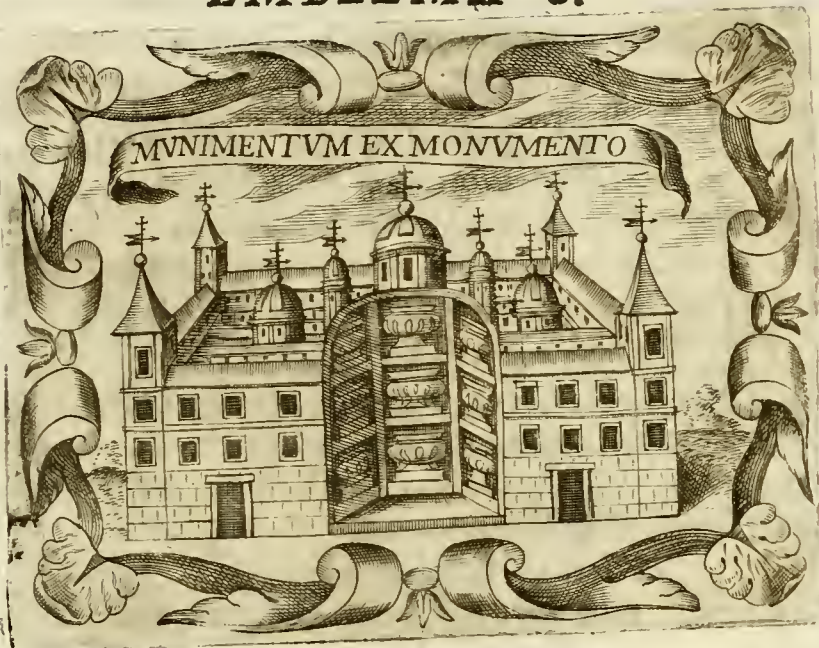 MVNIMENTVM EX MONVMENTO